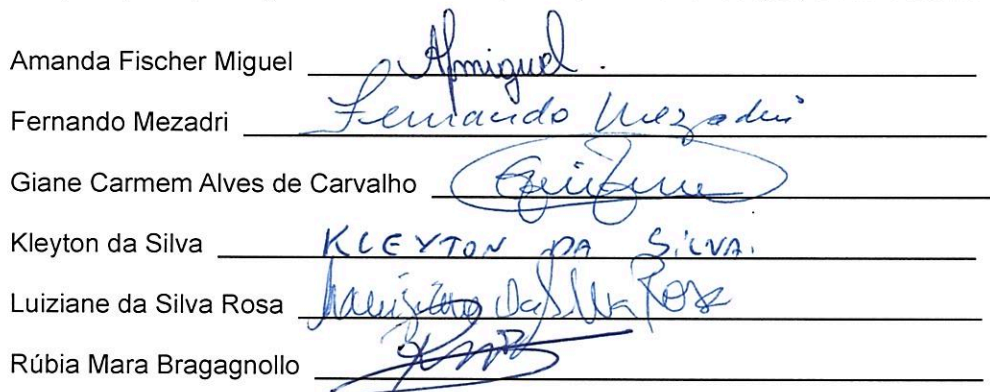 Amanda Fischer Miguel Afmiguel.
Fernando Mezadri Fernando Mezadri
Giane Carmem Alves de Carvalho
Kleyton da Silva KLEYTON DA SILVA.
Luiziane da Silva Rosa Luiziane da Silva Rosa
Rúbia Mara Bragagnollo